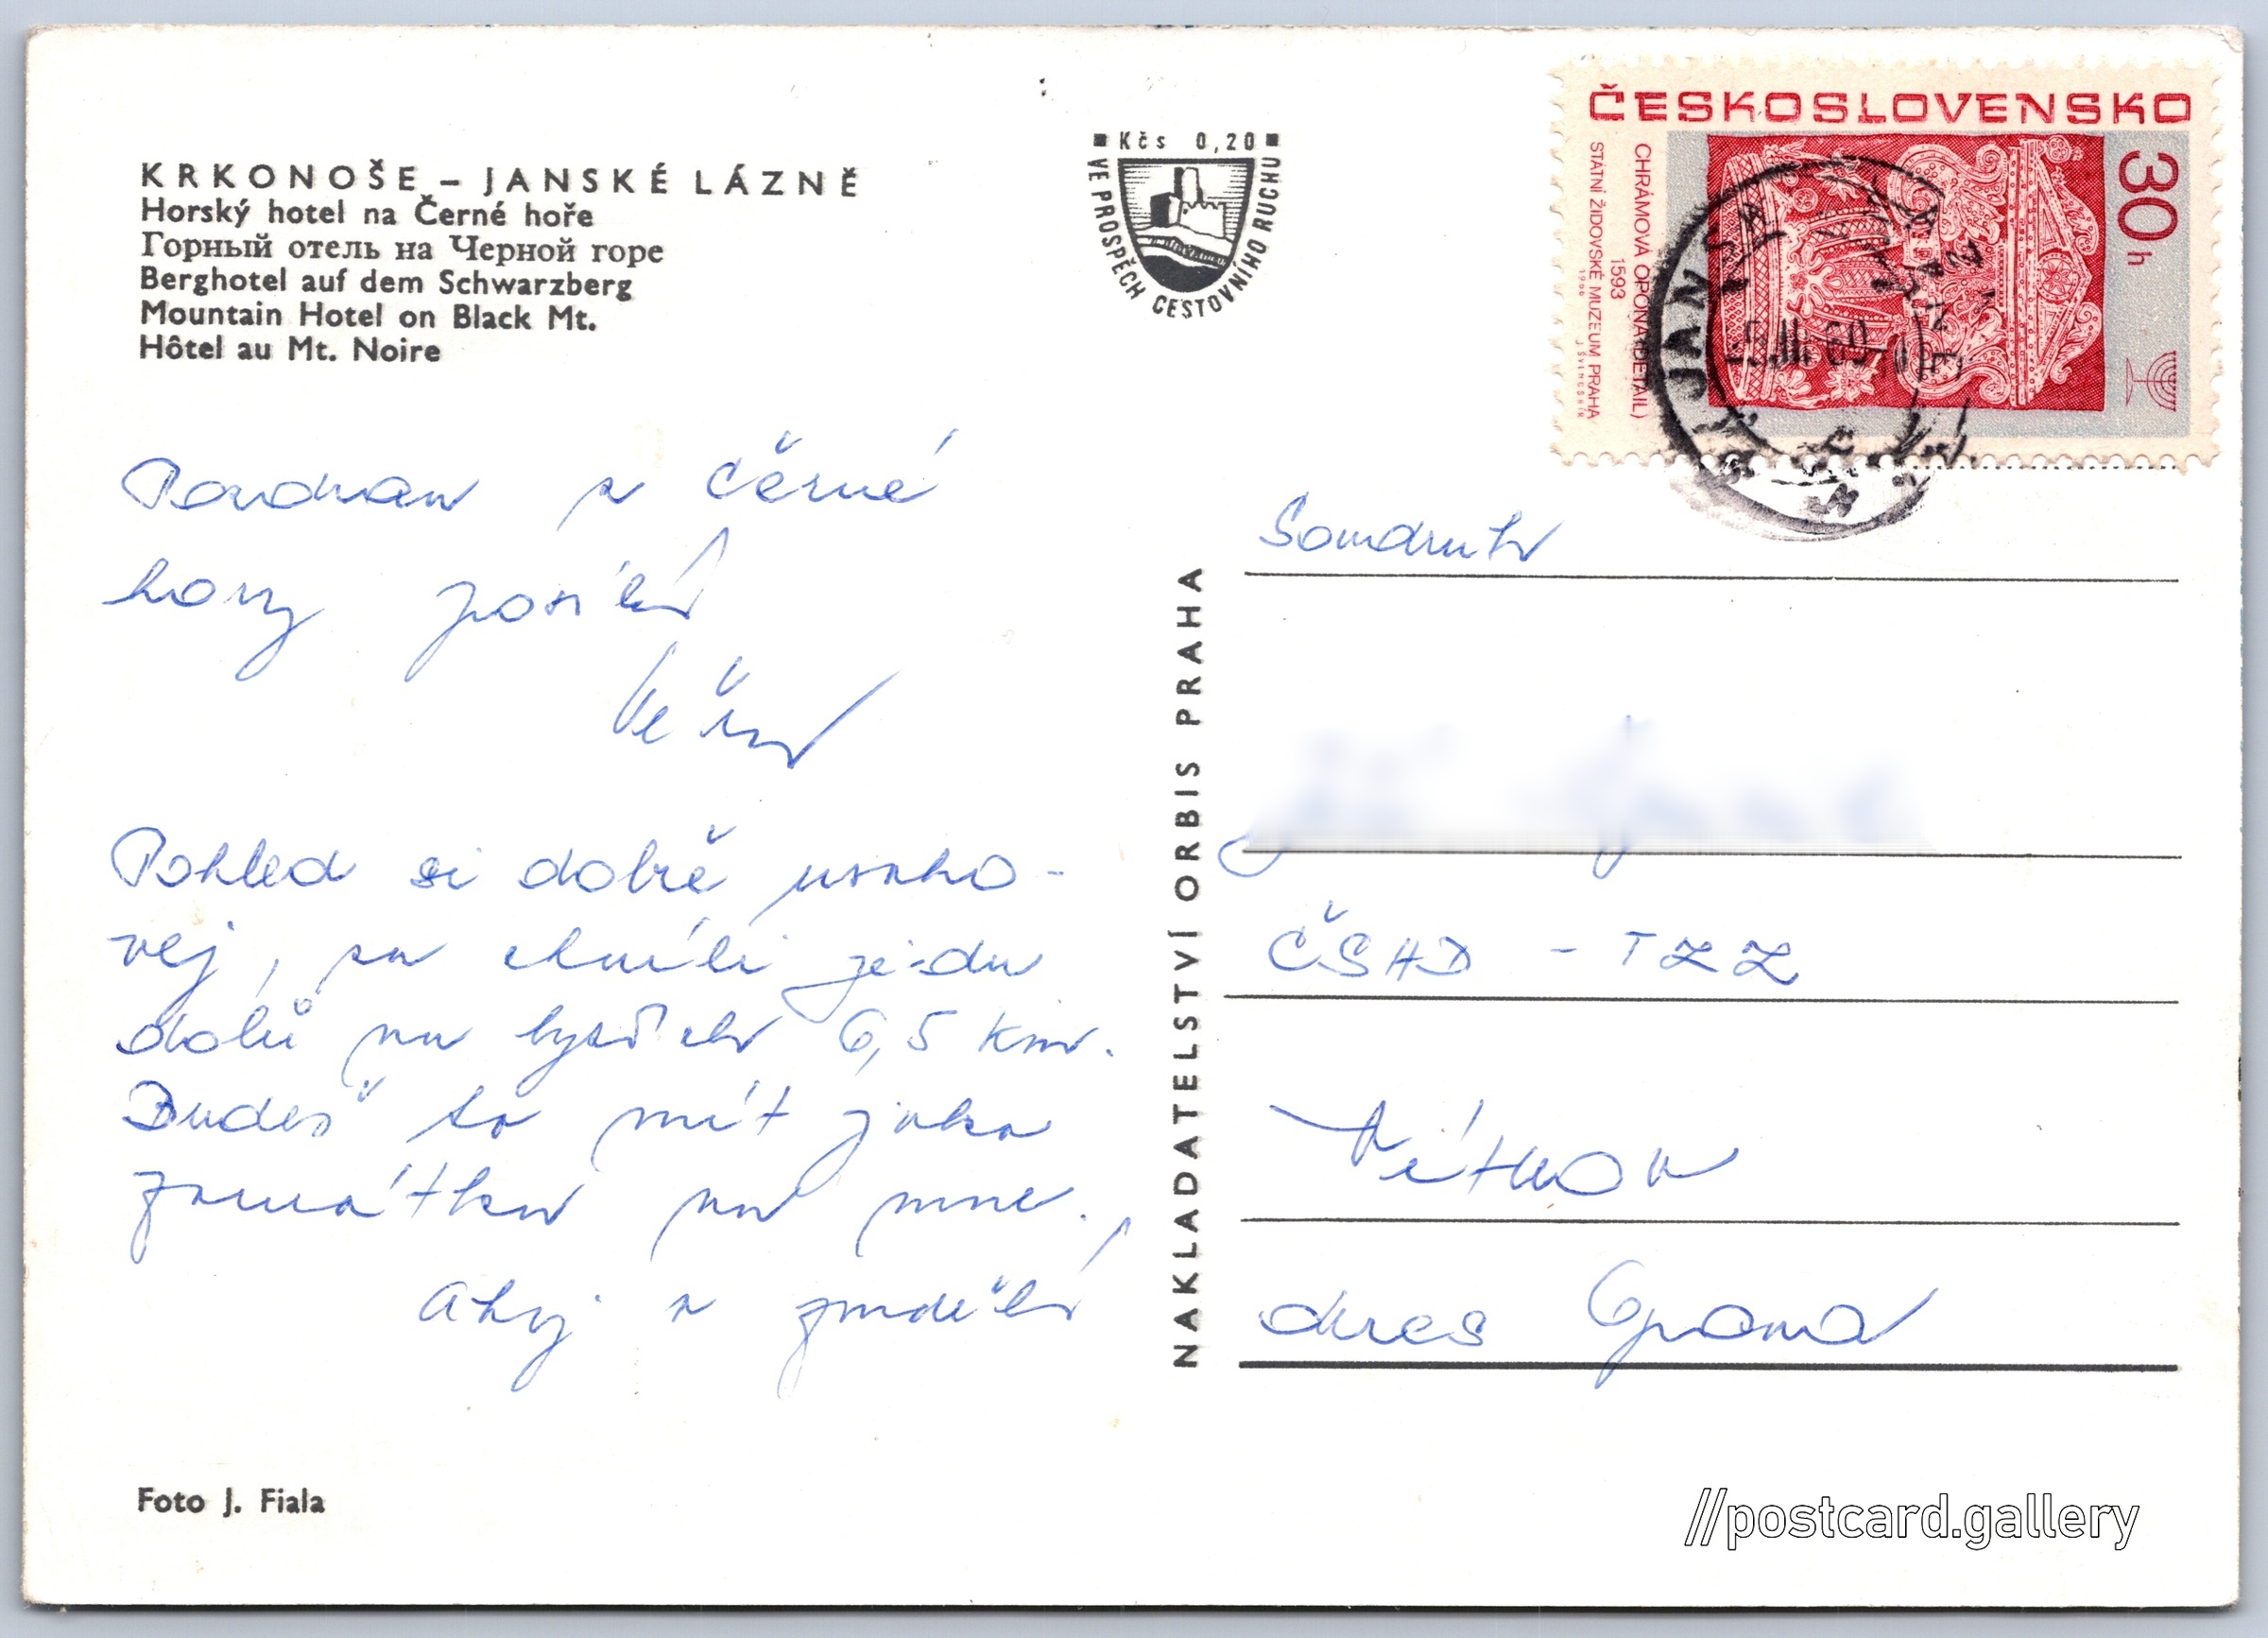 KRKONOŠE – JANSKÉ LÁZNĚ
Horský hotel na Černé hoře
Горный отель на Черной горе
Berghotel auf dem Schwarzberg
Mountain Hotel on Black Mt.
Hôtel au Mt. Noire
Kčs 0,20
VE PROSPĚCH CESTOVNÍHO RUCHU
ČESKOSLOVENSKO
30 h
CHRÁMOVÁ OPONA (DETAIL)
1593
STÁTNÍ ŽIDOVSKÉ MUZEUM PRAHA
Pozdrav z Černé
hory posílá
Pohled si dobře uscho-
vej, za chvíli jedu
dolů na lyžích 6,5 km.
Budeš to mít jako
památku na mne.
Ahoj v pondělí
NAKLADATELSTVÍ ORBIS PRAHA
Soudruh
ČSAD - TZZ
Vítkov
okres Opava
Foto J. Fiala
//postcard.gallery